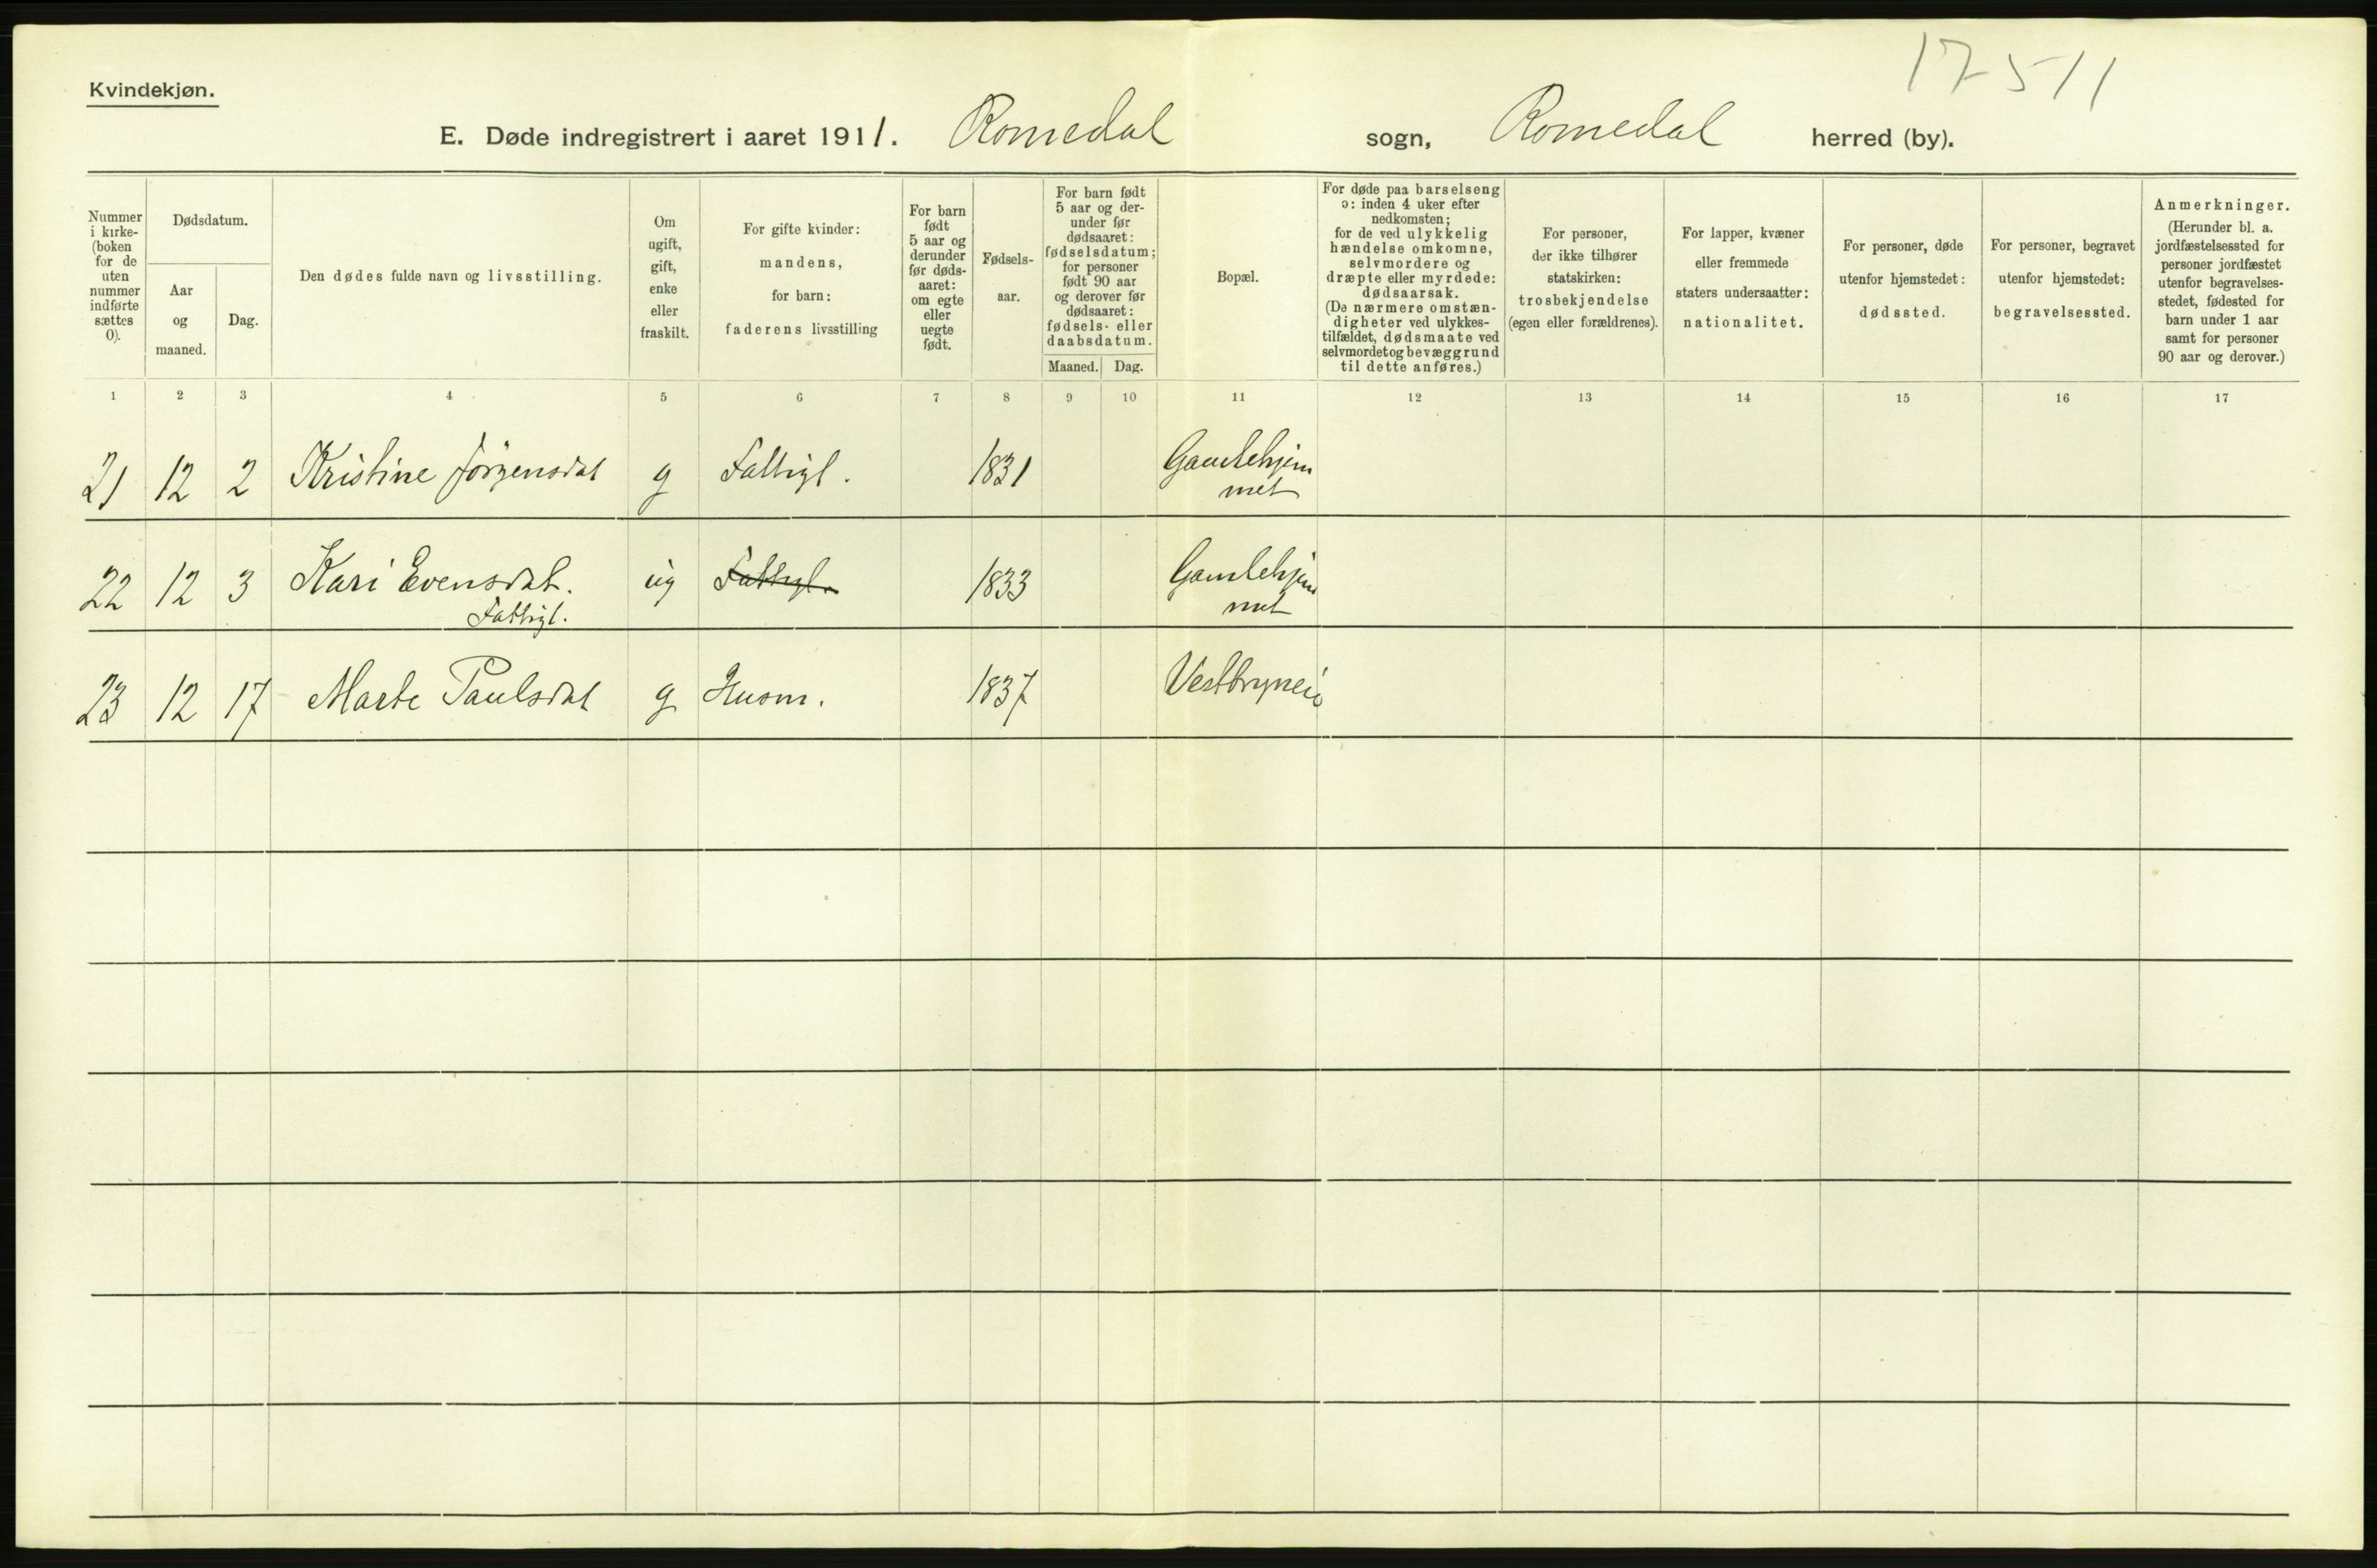 17511
Kvindekjøn.
E. Døde indregistrert i aaret 1911. Romedal sogn, Romedal herred (by).
Nummer i kirke- (boken for de uten nummer indførte sættes 0).
Dødsdatum.
Aar og maaned.
Dag.
Den dødes fulde navn og livsstilling.
Om ugift, gift, enke eller fraskilt.
For gifte kvinder: mandens, for barn: faderens livsstilling
For barn født 5 aar og derunder før døds- aaret: om egte eller uegte født.
Fødsels- aar.
For barn født 5 aar og der- under før dødsaaret: fødselsdatum; for personer født 90 aar og derover før dødsaaret: fødsels- eller daabsdatum.
Maaned. Dag.
Bopæl.
For døde paa barselseng ɔ: inden 4 uker efter nedkomsten; for de ved ulykkelig hændelse omkomne, selvmordere og dræpte eller myrdede: dødsaarsak. (De nærmere omstæn- digheter ved ulykkes- tilfældet, dødsmaate ved selvmordet og bevæggrund til dette anføres.)
For personer, der ikke tilhører statskirken: trosbekjendelse (egen eller forældrenes).
For lapper, kvæner eller fremmede staters undersaatter: nationalitet.
For personer, døde utenfor hjemstedet: dødssted.
For personer, begravet utenfor hjemstedet: begravelsessted.
Anmerkninger. (Herunder bl. a. jordfæstelsessted for personer jordfæstet utenfor begravelses- stedet, fødested for barn under 1 aar samt for personer 90 aar og derover.)
1 2 3 4 5 6 7 8 9 10 11 12 13 14 15 16 17
21 12 2 Kristine Jörgensdat g Fattigl. 1831 Gamlehjem
met
22 12 3 Kari Evensdat. ug Fattigl. 1833 Gamlehjem
Fattigl. met
23 12 17 Marte Paulsdat g Husm. 1837 Vestbryneie